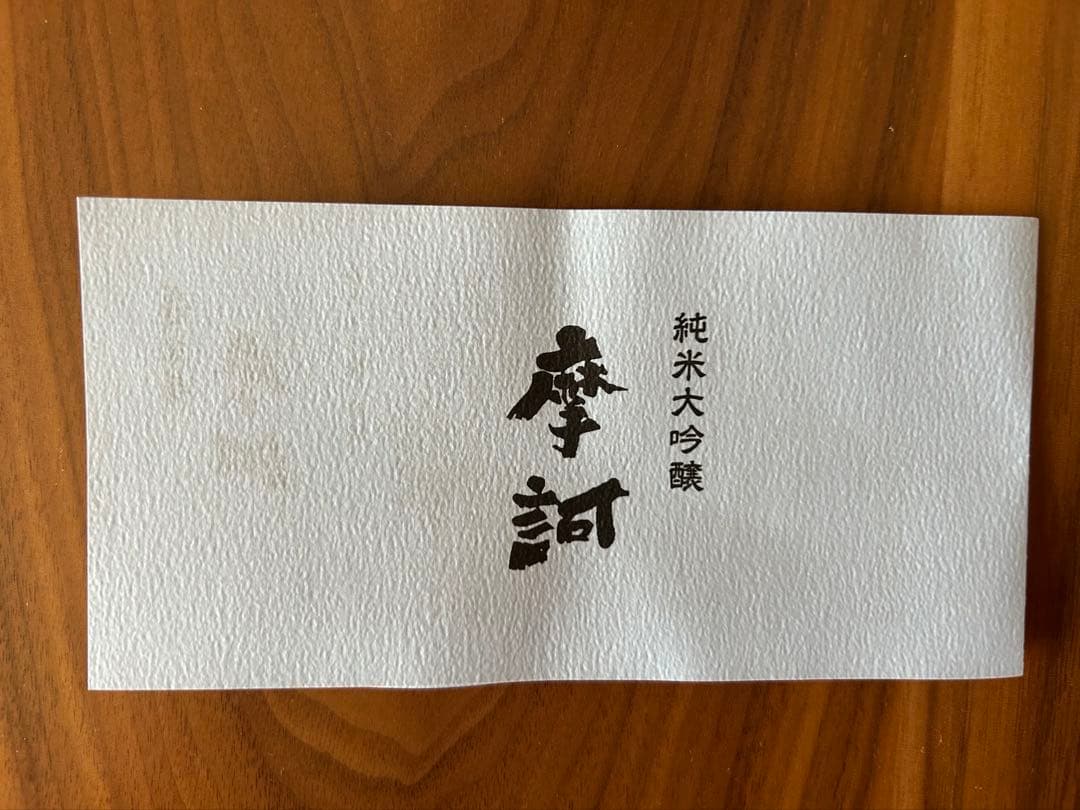 純米大吟醸
摩訶